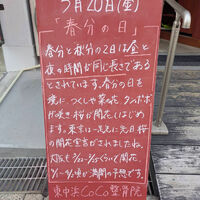 3月20日(金)
「春分の日」
春分と秋分の2日は昼と
夜の時間が同じ長さである
とされています。春分の日を
境に、つくしや菜の花、
が咲き桜が開花しはじめ
ます。東京は一足先に先日桜
の開花宣言がされましたね。
大阪も
が満開の予想です。
東中浜CoCo整骨院